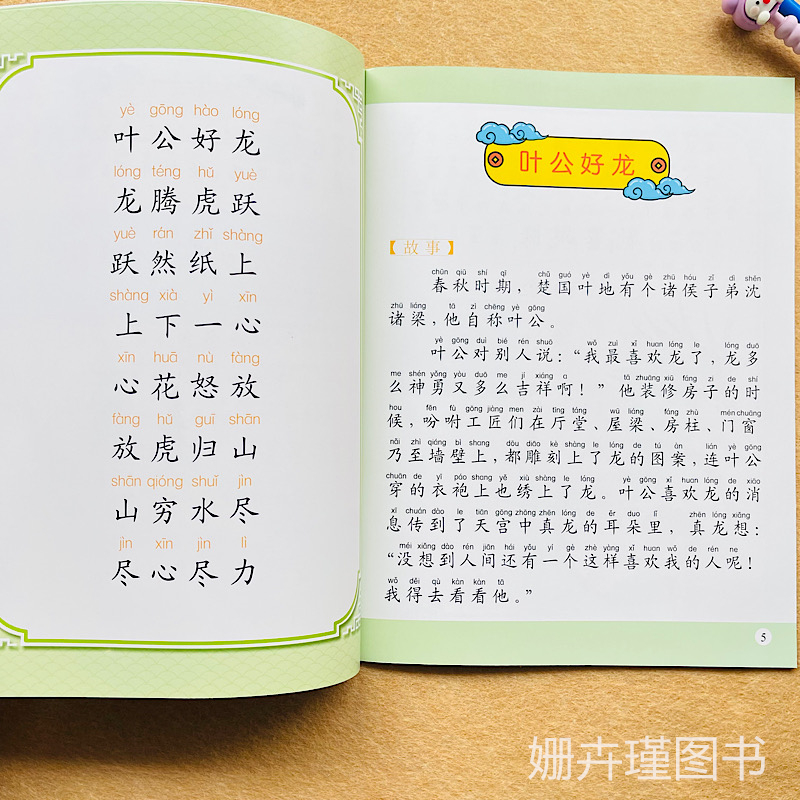 yè gōng hào lóng
叶公好龙
lóng téng hǔ yuè
龙腾虎跃
yuè rán zhǐ shàng
跃然纸上
shàng xià yì xīn
上下一心
xīn huā nù fàng
心花怒放
fàng hǔ guī shān
放虎归山
shān qióng shuǐ jìn
山穷水尽
jìn xīn jìn lì
尽心尽力
叶公好龙
【故事】
chūn qiū shí qī chǔ guó yè dì yǒu gè zhū hóu zǐ dì shěn
春秋时期，楚国叶地有个诸侯子弟沈
zhū liáng tā zì chēng yè gōng
诸梁，他自称叶公。
yè gōng duì bié rén shuō wǒ zuì xǐ huan lóng le lóng duō
叶公对别人说：“我最喜欢龙了，龙多
me shén yǒng yòu duō me jí xiáng a tā zhuāng xiū fáng zi de shí
么神勇又多么吉祥啊！”他装修房子的时
hou fēn fù gōng jiàng men zài tīng táng wū liáng fáng zhù mén chuāng
候，吩咐工匠们在厅堂、屋梁、房柱、门窗
nǎi zhì qiáng bì shang dōu diāo kè shàng le lóng de tú àn lián yè gōng
乃至墙壁上，都雕刻上了龙的图案，连叶公
chuān de yī páo shang yě xiù shàng le lóng yè gōng xǐ huan lóng de xiāo
穿的衣袍上也绣上了龙。叶公喜欢龙的消
xi chuán dào le tiān gōng zhōng zhēn lóng de ěr duo lǐ zhēn lóng xiǎng
息传到了天宫中真龙的耳朵里，真龙想：
méi xiǎng dào rén jiān hái yǒu yí gè zhè yàng xǐ huan wǒ de rén ne
“没想到人间还有一个这样喜欢我的人呢！
wǒ děi qù kàn kàn tā
我得去看看他。”
5
姗卉瑾图书